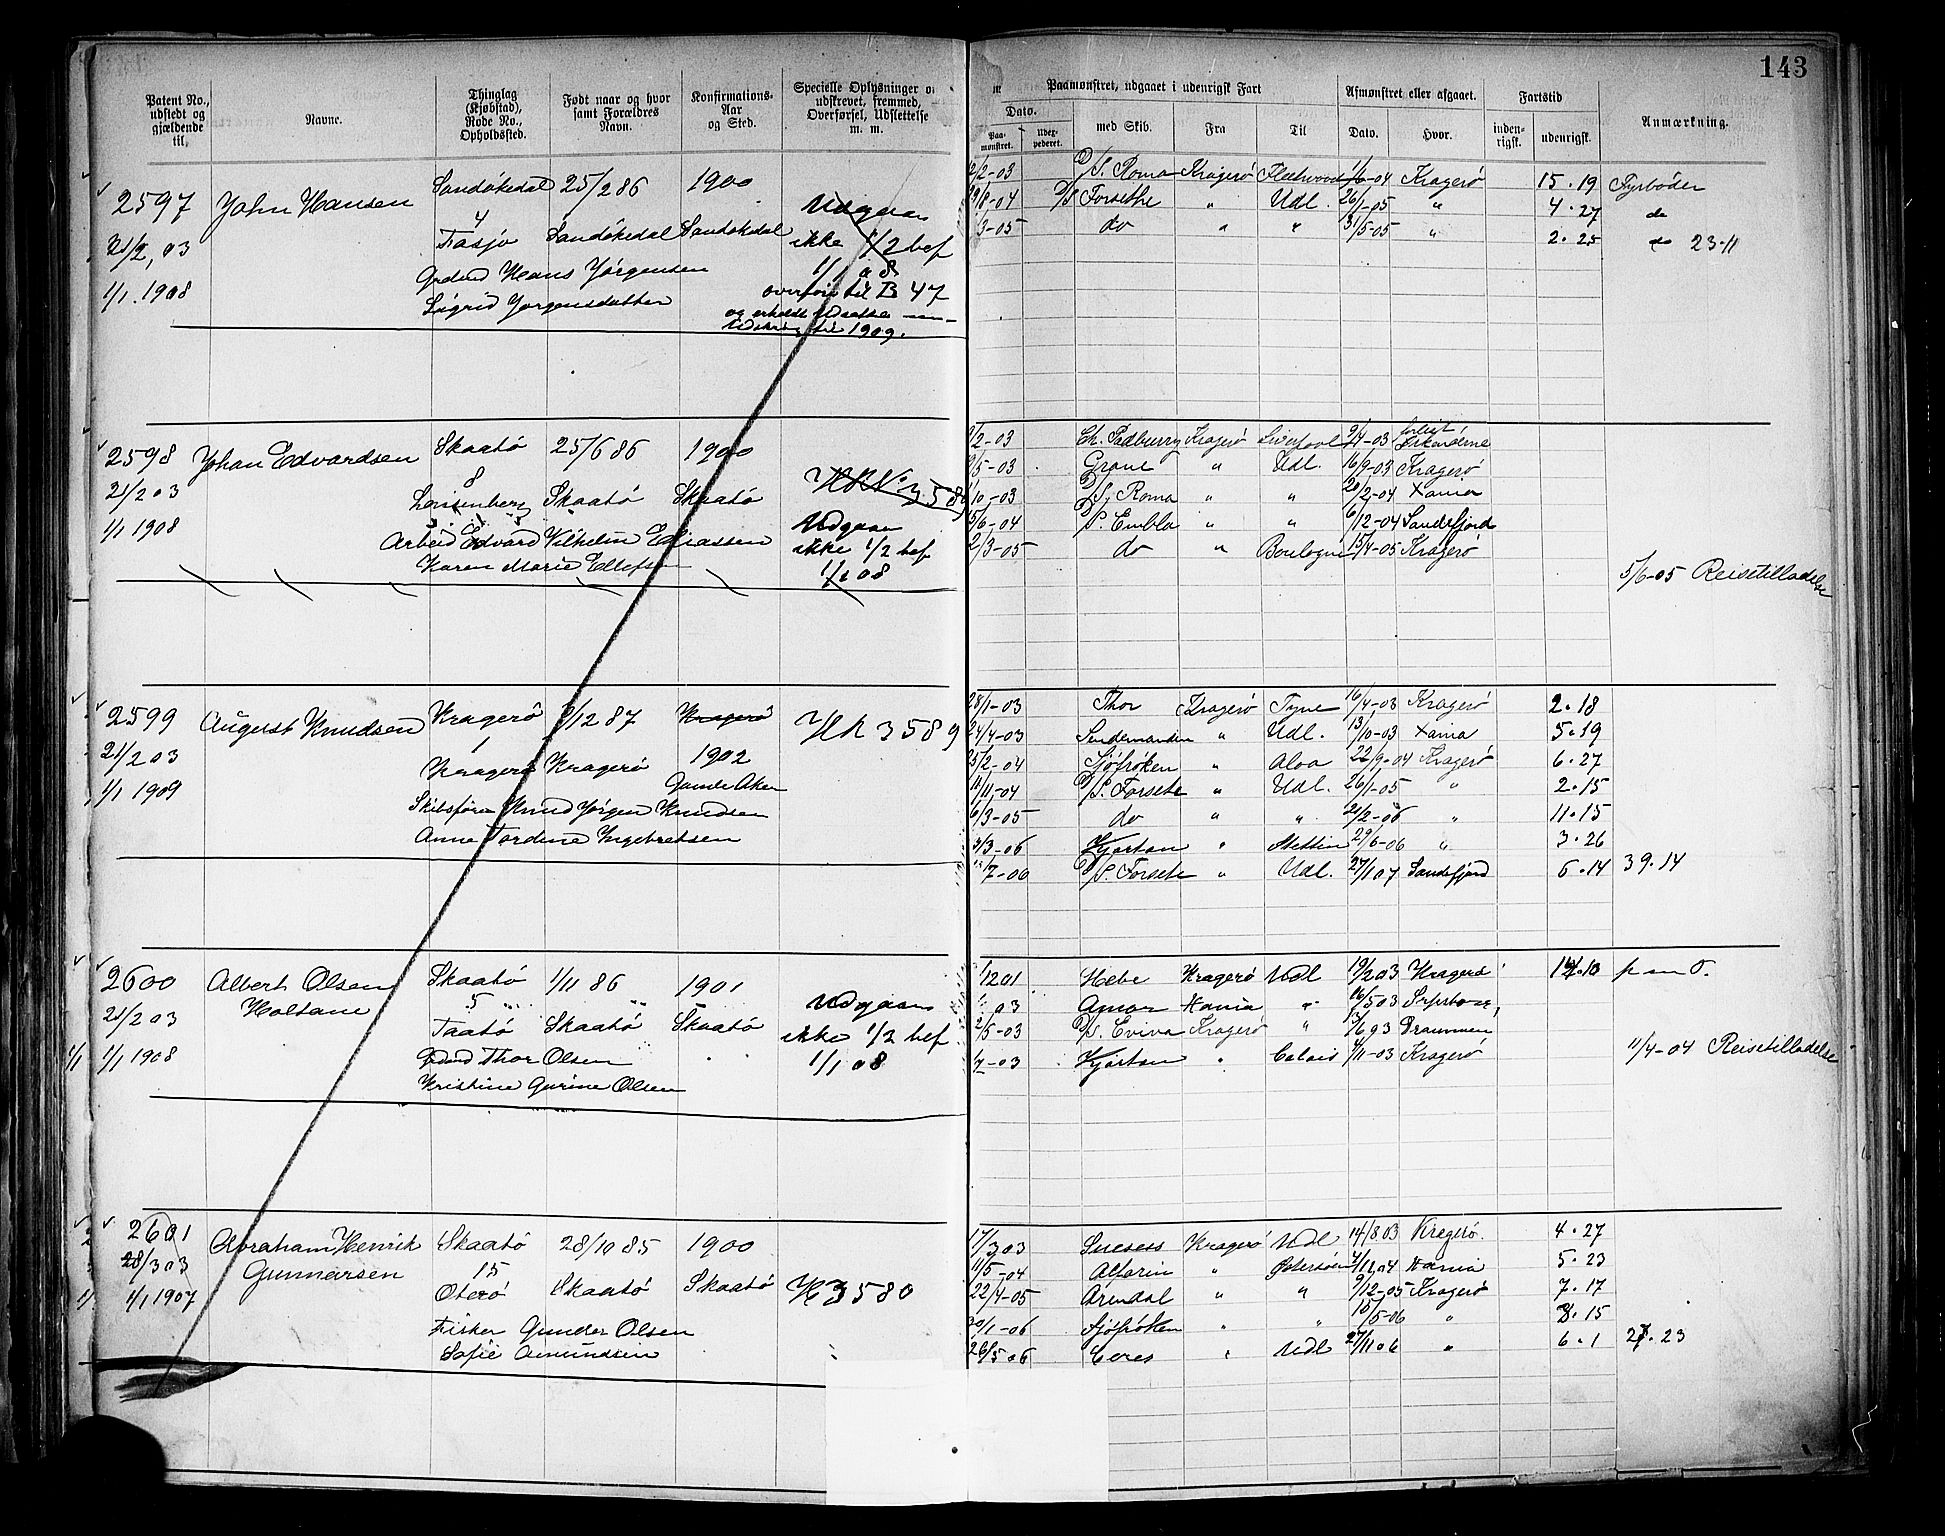 143
Patent No., udstedt og gjældende til.
Navne.
Thinglag (Kjøbstad), Rode No., Opholdssted.
Født naar og hvor samt Forældres Navn.
Konfirmations-Aar og Sted.
Specielle Oplysninger om udskrevet, fremmed, Overførsel, Udslettelse m. m.
Paamønstret, udgaaet i udenrigsk Fart
Dato.
Paamønstret.
Udexpederet.
med Skib.
Fra
Til
Afmønstret eller afgaaet.
Dato.
Hvor.
Fartstid
indenrigsk.
udenrigsk.
Anmærkning.
2597 John Hansen Sandøkedal 25/2 86 1900
4
21/2, 03 Sandøkedal Sandøkedal
1/1. 1908 Hans Jørgensen
Sigrid Jørgensdatter
Udgaar
ikke 1/2 bef
1/1 08
overført til B 47
1909.
2/2-03 D/S. Roma Kragerø Fleetwood 1/6-04 Kragerø 15.19 Fyrbøder
D/S Forsethe " Udl. 26/1-05 " 4.27 do
3-05 do " " 31/5-05 " 2.25 do 23.11
2598 Johan Edvardsen Skaatø 25/6 86 1900
8
21/2 03 Skaatø Skaatø
1/1 1908 Arbeid Edvard Vilhelm Eliassen
Karen Marie Ellefsen
HR No 3589
Udgaar
ikke 1/2 bef
1/1 08
2-03 Ch. Padburry Kragerø Liverpool 9/4-03
5-03 Grane " Udl. 16/9-03 Kragerø
10-03 D/S. Roma " " 20/2-04 Xania
5/6-04 D/S Embla " " 6/12-04 Sandefjord
2/3-05 do " Boulogne 15/4-05 Kragerø
5/6-05 Reisetilladelse
2599 August Knudsen Kragerø 9/12 87 Kragerø
1
21/2 03 Kragerø Kragerø 1902
1/1 1909 Gamle Aker
Skibsfører Knud Jørgen Knudsen
Anne Tordine Ingebretsen
HR 3589
28/1-03 Thor Kragerø Tyne 16/4-03 Kragerø 2.18
24/4-03 " Udl. 13/10-03 Xania 5.19
25/2-04 Sjøfrøken " Aloa 22/9-04 Kragerø 6.27
11/11-04 D/S. Forsete " Udl. 26/1-05 " 2.15
6/3-05 do " " 20/2-06 " 11.15
3-06 Kjartan " Stettin 29/6-06 " 3.26
7-06 D/S. Forsete " Udl. 27/1 07 Sandefjord 6.14 39.14
2600 Albert Olsen Holtane Skaatø 1/11 86 1901
5 " "
21/2 03 Taatø Skaatø Skaatø
1/1 1/1 1908 Thor Olsen
Kristine Gurine Olsen
Udgaar
ikke 1/2 bef
1/1 08
12 01 Hebe Kragerø Udl 19/2 03 Kragerø p m O.
03 Xania " 16/5 03
2/5-03 D/S. Eviva Kragerø " Drammen
7-03 Kjartan " Calais 4/11-03 Kragerø
11/4-04 Reisetilladelse
2601 Abraham Henrik Gunnarsen Skaatø 28/10 85 1900
15
28/3 03 Oterø Skaatø Skaatø
1/1 1907 Fisker Gunder Olsen
Sofie Amundsen
H 3580
17/3 03 Sucsess Kragerø Udl 14/8 03 Kragerø. 4.27
11/5-04 Alfarin " Østersøen 4/11 04 Xania 5.23
22/4-05 Arendal " " 9/12-05 Kragerø 7.17
30/1-06 Sjøfrøken " " 15/5-06 " 3.15
26/5 06 Ceres " Udl 27/11 06 " 6.1 27.23